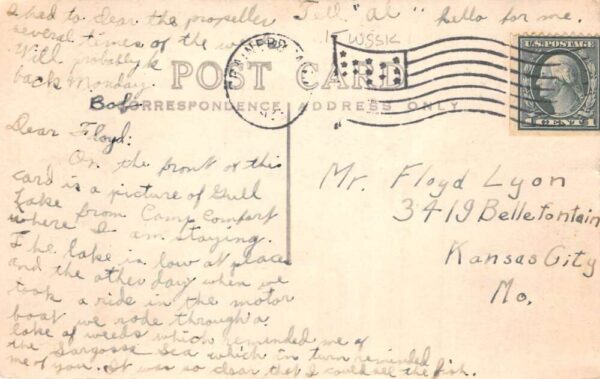 I had to clear the propeller
several times of the
Will probably be
back Monday.
Bob
Tell "Al" hello for me.
WSSK
U.S. POSTAGE
1 CENT 1
POST CARD
CORRESPONDENCE
ADDRESS ONLY
Dear Floyd:
On the front of this
card is a picture of Gull
Lake from Camp Comfort
where I am staying.
The lake is low at place
and the other day when we
took a ride in the motor
boat we rode through a
lake of weeds which reminded me of
the Sargossa Sea which in turn reminded
me of you. It was so clear that I could see the fish.
Mr. Floyd Lyon
3419 Bellefontain
Kansas City
Mo.